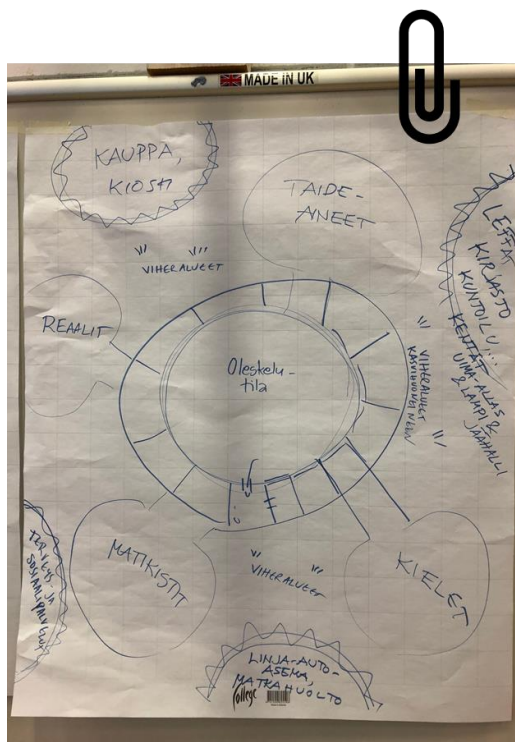 MADE IN UK
KAUPPA,
KIOSKI
TAIDE-
AINEET
LEFFAT
KIRJASTO
KUNTOILU...
KENTÄT
UIMA ALLAS &
& LAMPI &
JÄÄHALLI
VIHERALUEET
REAALIT
Oleskelu-
tila
VIHERALUEET
KASVIHUONEINEEN
MATIKISTIT
VIHERALUEET
KIELET
TERVEYS JA
SOSIAALIPALVELUT
LINJA-AUTO-
ASEMA,
MATKAHUOLTO
College